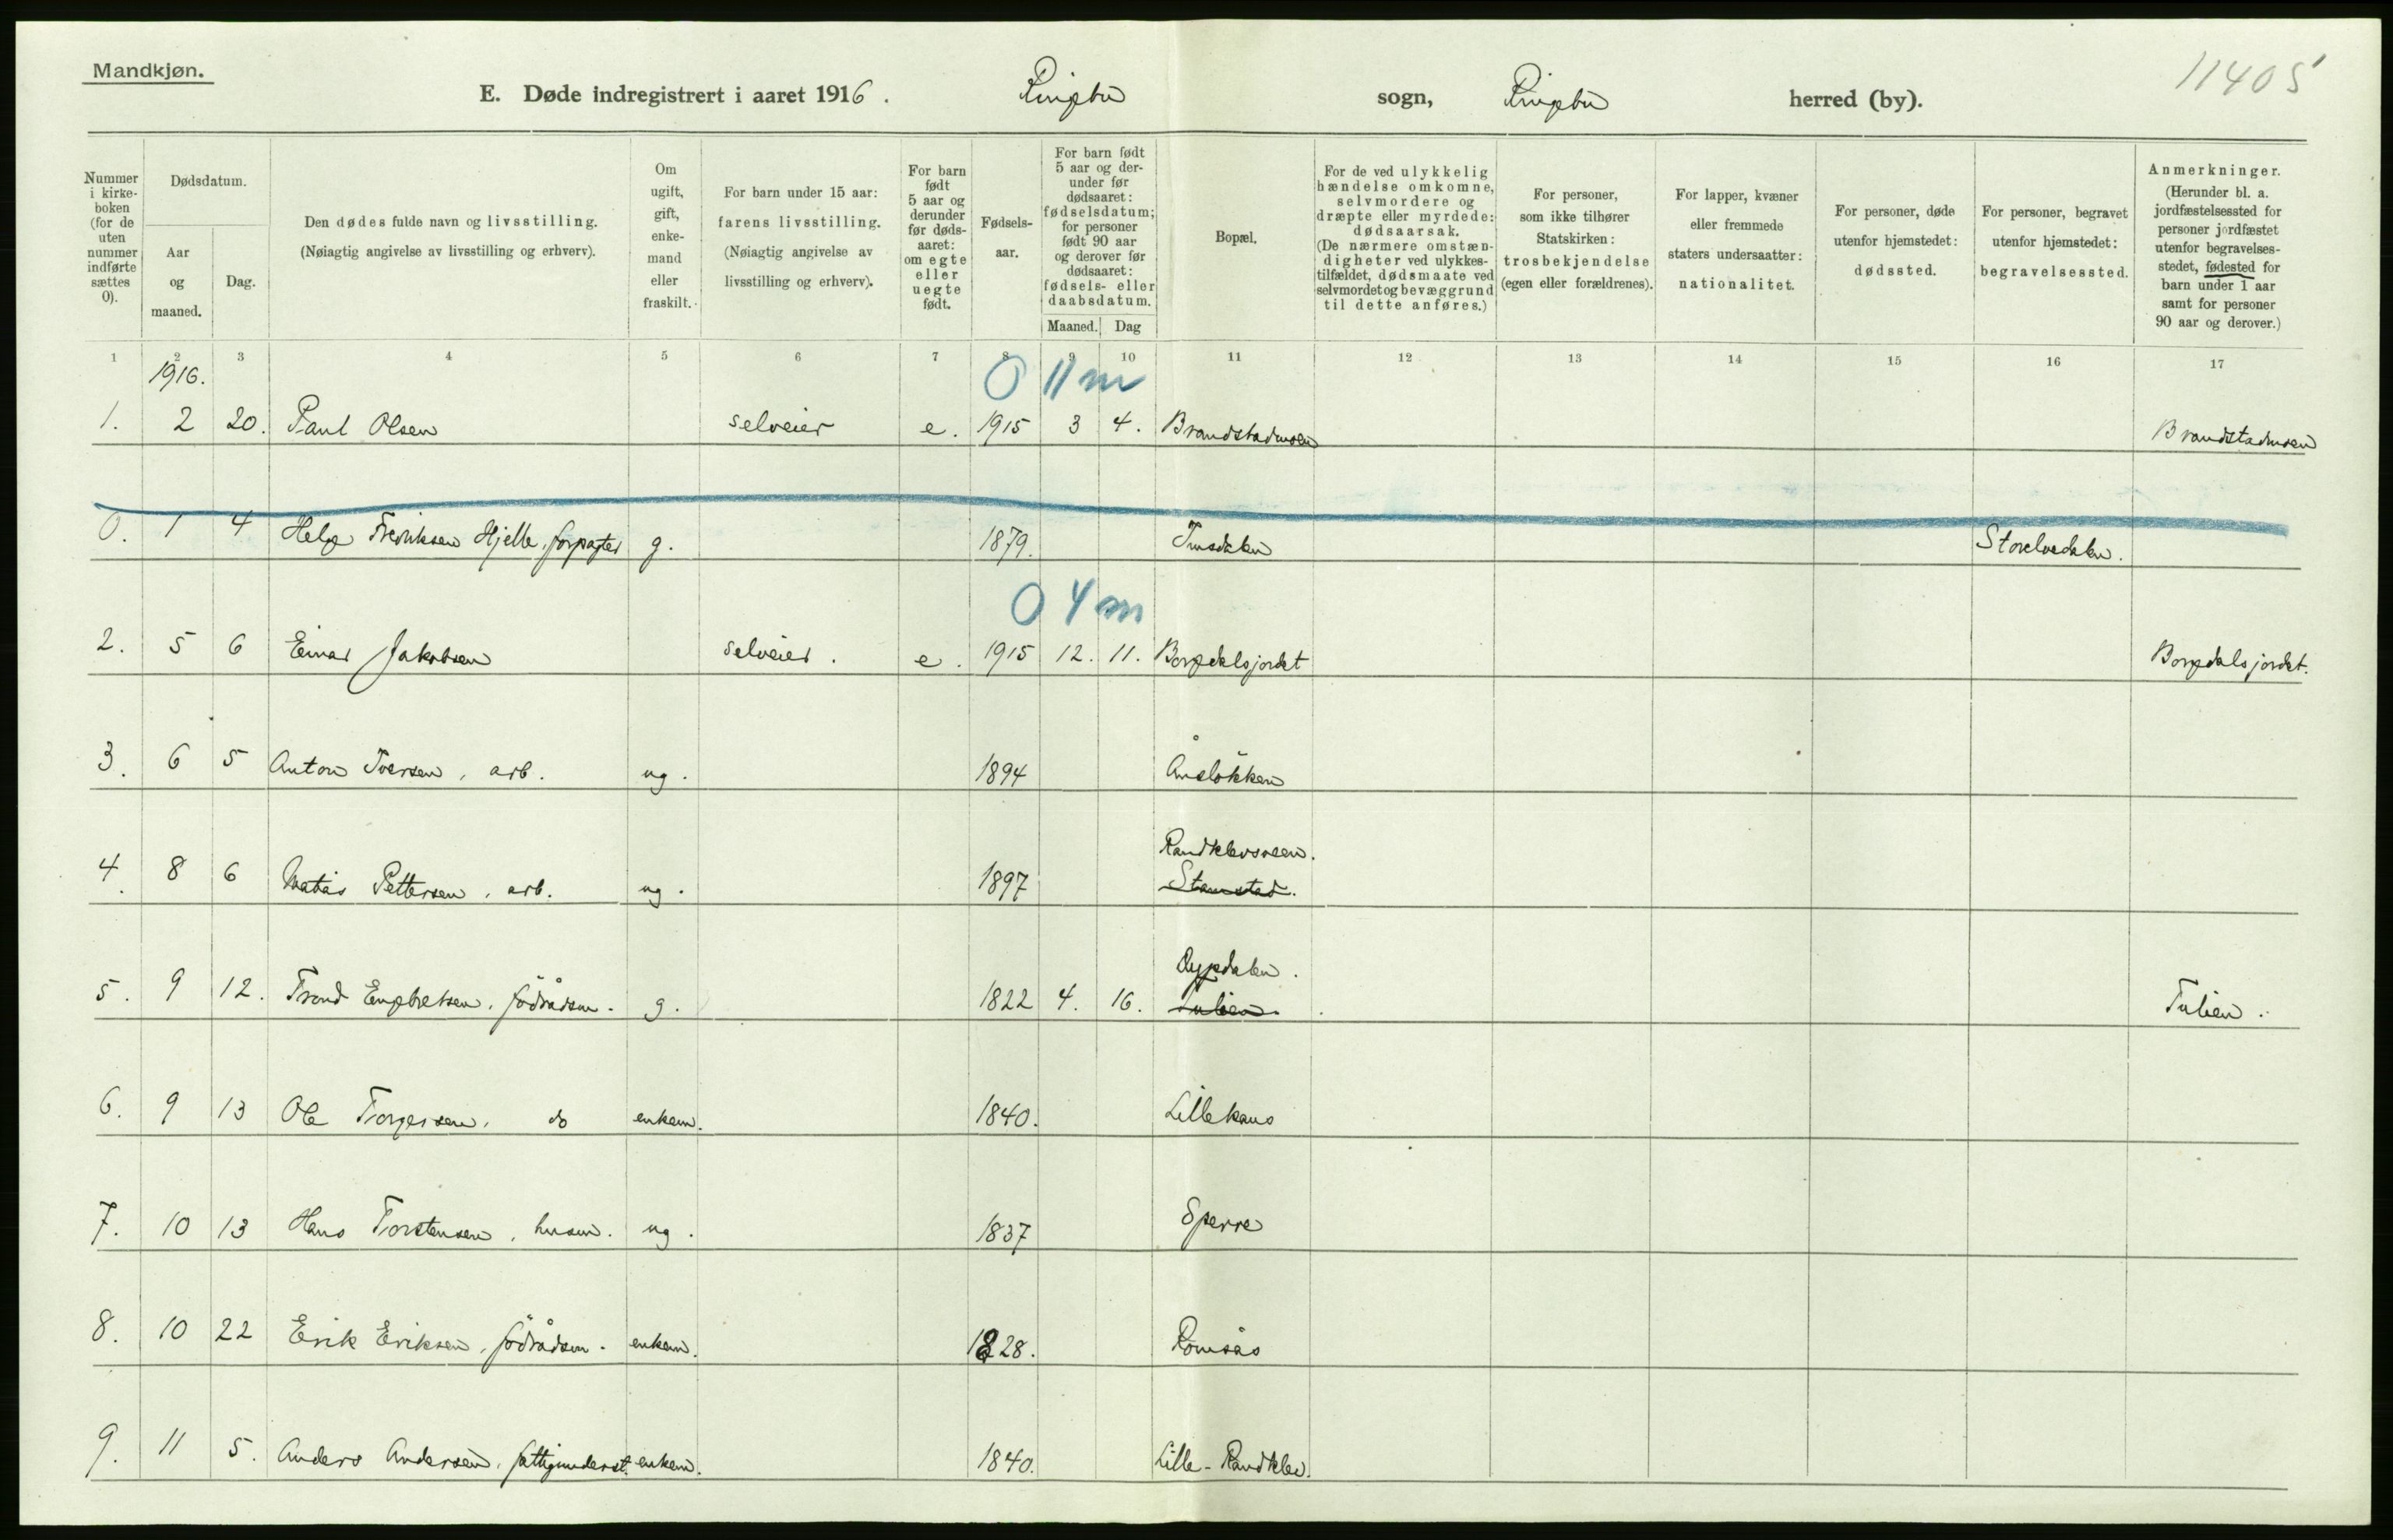 Mandkjøn.
11405
E. Døde indregistrert i aaret 1916. Ringebu sogn, Ringebu herred (by).
Nummer i kirke-boken (for de uten nummer indførte sættes 0).
Dødsdatum.
Aar og maaned.
Dag.
Den dødes fulde navn og livsstilling.
(Nøiagtig angivelse av livsstilling og erhverv).
Om ugift, gift, enke-mand eller fraskilt.
For barn under 15 aar: farens livsstilling.
(Nøiagtig angivelse av livsstilling og erhverv).
For barn født 5 aar og derunder før døds-aaret: om egte eller uegte født.
Fødsels-aar.
For barn født 5 aar og der-under før dødsaaret: fødselsdatum; for personer født 90 aar og derover før dødsaaret: fødsels- eller daabsdatum.
Maaned. Dag
Bopæl.
For de ved ulykkelig hændelse omkomne, selvmordere og dræpte eller myrdede: dødsaarsak.
(De nærmere omstæn-digheter ved ulykkes-tilfældet, dødsmaate ved selvmordet og bevæggrund til dette anføres.)
For personer, som ikke tilhører Statskirken: trosbekjendelse (egen eller forældrenes).
For lapper, kvæner eller fremmede staters undersaatter: nationalitet.
For personer, døde utenfor hjemstedet: dødssted.
For personer, begravet utenfor hjemstedet: begravelsessted.
Anmerkninger.
(Herunder bl. a. jordfæstelsessted for personer jordfæstet utenfor begravelses-stedet, fødested for barn under 1 aar samt for personer 90 aar og derover.)
1 2 3 4 5 6 7 8 9 10 11 12 13 14 15 16 17
1916. 0 11 m
1. 2 20. Paul Olsen selveier e. 1915 3 4. Brandstadmoen Brandstadmoen
0. 1 4 Helge Fredriksen Hjelle, forpagter g. 1879. Imsdalen Storelvedalen.
0 4 m
2. 5 6 Einar Jakobsen selveier. e. 1915 12. 11. Borgedalsjordet Borgedalsjordet.
3. 6 5 Anton Iversen, arb. ug. 1894 Åmeløkken
Randklevsveen.
4. 8 6 Matias Pettersen, arb. ug. 1897 Stamstad.
5. 9 12. Trond Engebretsen, föderådsm. g. 1822 4. 16. Tulien. Tulien.
6. 9 13 Ole Torgersen, do enkem. 1840. Lillekans
7. 10 13 Hans Torstensen, husm. ug. 1837 Sperre
8. 10 22 Erik Eriksen, föderådsm. enkem. 1828. Romsås
9. 11 5. Anders Andersen, fattigunderst. enkem. 1840. Lille-Randklev.